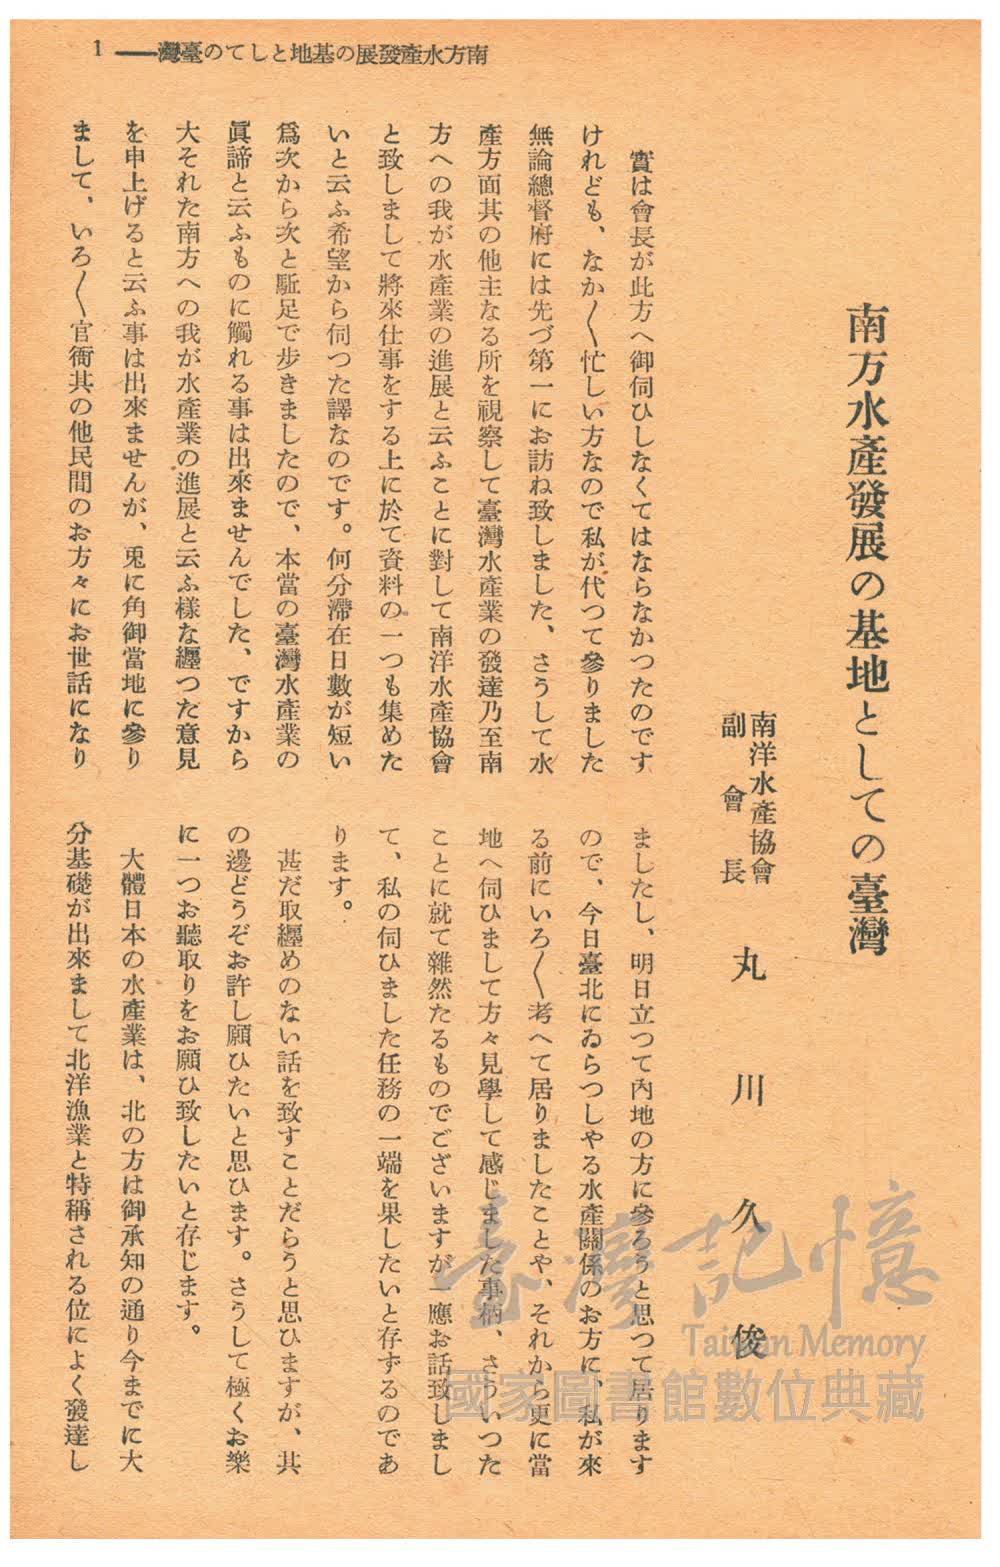 南方水產發展の基地としての臺灣——1
南方水產發展の基地としての臺灣
南洋水產協會
副會長
丸川久俊
實は會長が此方へ御伺ひしなくてはならなかつたのです
けれども、なか〱忙しい方なので私が代つて參りました
無論總督府には先づ第一にお訪ね致しました、さうして水
產方面其の他主なる所を視察して臺灣水產業の發達乃至南
方への我が水產業の進展と云ふことに對して南洋水產協會
と致しまして將來仕事をする上に於て資料の一つも集めた
いと云ふ希望から伺つた譯なのです。何分滯在日數が短い
爲次から次と駈足で步きましたので、本當の臺灣水產業の
眞諦と云ふものに觸れる事は出來ませんでした、ですから
大それた南方への我が水產業の進展と云ふ樣な纒つた意見
を申上げると云ふ事は出來ませんが、兎に角御當地に參り
まして、いろ〱官衙其の他民間のお方々にお世話になり
ましたし、明日立つて內地の方に參ろうと思つて居ります
ので、今日臺北にゐらつしやる水產關係のお方に、私が來
る前にいろ〱考へて居りましたことや、それから更に當
地へ伺ひまして方々見學して感じました事柄、さういつた
ことに就て雜然たるものでございますが一應お話致しまし
て、私の伺ひました任務の一端を果したいと存ずるのであ
ります。
甚だ取纒めのない話を致すことだらうと思ひますが、其
の邊どうぞお許し願ひたいと思ひます。さうして極くお樂
に一つお聽取りをお願ひ致したいと存じます。
大體日本の水產業は、北の方は御承知の通り今までに大
分基礎が出來まして北洋漁業と特稱される位によく發達し
臺灣記憶
Taiwan Memory
國家圖書館數位典藏